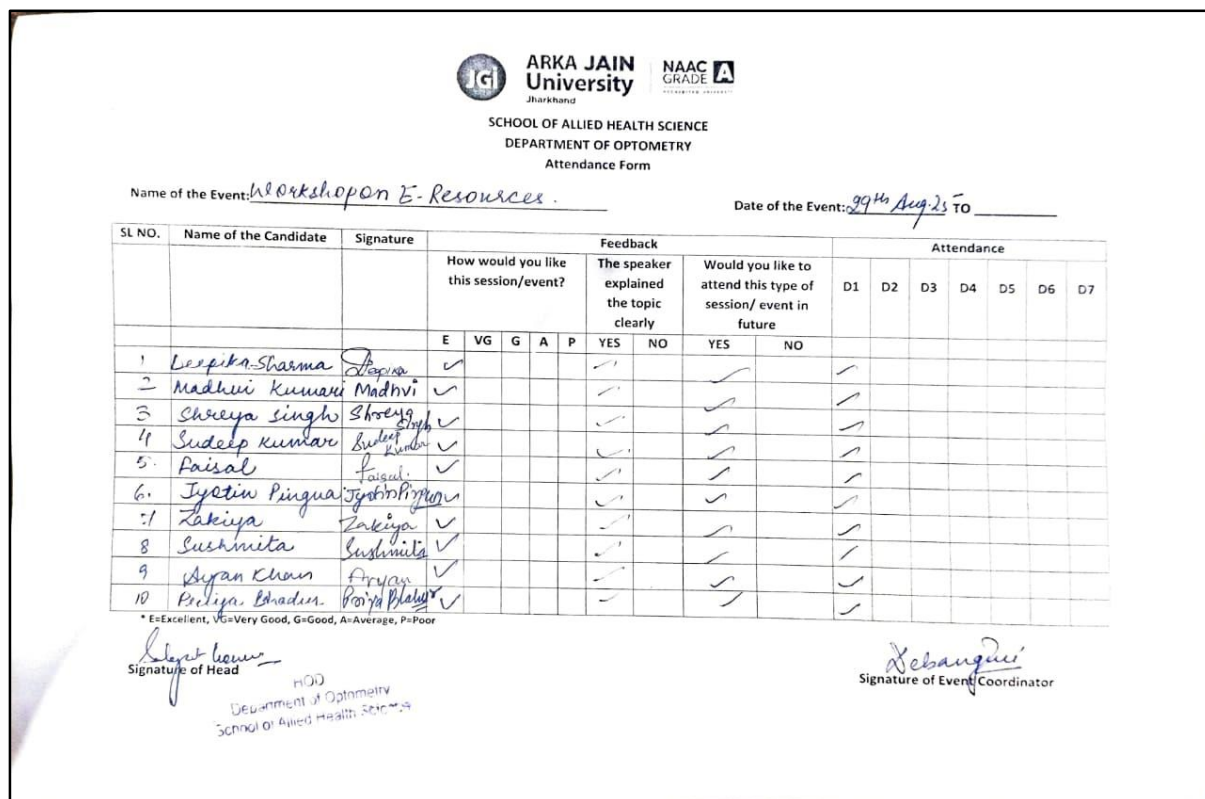 JGi ARKA JAIN University Jharkhand NAAC GRADE A
SCHOOL OF ALLIED HEALTH SCIENCE
DEPARTMENT OF OPTOMETRY
Attendance Form
Name of the Event: Workshop on E-Resources. Date of the Event: 29th Aug. 25 TO
SL NO. Name of the Candidate Signature Feedback Attendance
How would you like this session/event? The speaker explained the topic clearly Would you like to attend this type of session/ event in future D1 D2 D3 D4 D5 D6 D7
E VG G A P YES NO YES NO
1 Deepika Sharma Deepika ✓ ✓ ✓ ✓
2 Madhvi Kumari Madhvi ✓ ✓ ✓ ✓
3 Shreya Singh Shreya Singh ✓ ✓ ✓ ✓
4 Sudeep Kumar Sudeep Kumar ✓ ✓ ✓ ✓
5. Faisal faisal. ✓ ✓ ✓ ✓
6. Jyotin Pingua Jyotin Pingua ✓ ✓ ✓ ✓
7 Zakiya Zakiya ✓ ✓ ✓ ✓
8 Sushmita Sushmita ✓ ✓ ✓ ✓
9 Khan Aryan ✓ ✓ ✓ ✓
10 Priya ✓ ✓ ✓ ✓
* E=Excellent, VG=Very Good, G=Good, A=Average, P=Poor
Signature of Head Signature of Event Coordinator
HOD
Department of Optometry
School of Allied Health Science